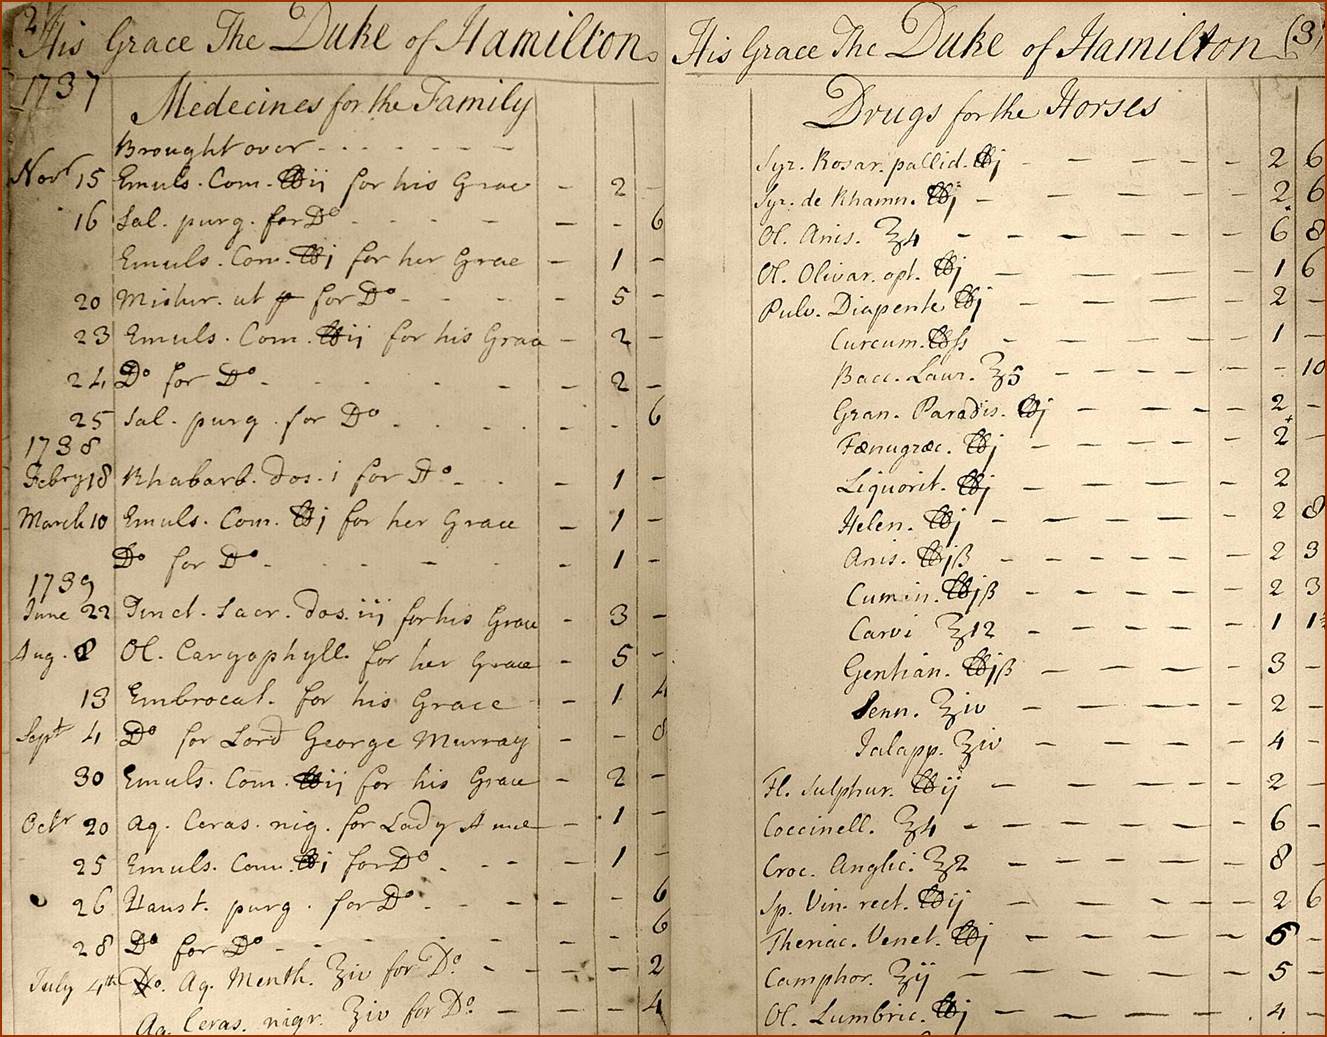 2)
His Grace The Duke of Hamilton.
1737
Medecines for the Family
Brought over
Novr 15 Emuls. Com. ℔ij for his Grace 2 -
16 Sal. purg. for Do - 6
Emuls. Com. ℔j for her Grace 1 -
20 Mistur. ut for Do 5 -
23 Emuls. Com. ℔ij for his Grace 2 -
24 Do for Do 2 -
25 Sal. purg. for Do - 6
1738
Febry 18 Rhabarb. dos. i for Do 1 -
March 10 Emuls. Com. ℔j for her Grace 1 -
Do for Do 1 -
1739
June 22 Tinct. Sacr. dos. iij for his Grace 3 -
Aug. 8 Ol. Caryophyll. for her Grace 5 -
13 Embrocat. for his Grace 1 4
Sept 4 Do for Lord George Murray - 8
30 Emuls. Com. ℔ij for his Grace 2 -
Octr 20 Aq. Ceras. nig. for Lady Anne 1 -
25 Emuls. Com. ℔j for Do 1 -
26 Haust. purg. for Do - 6
28 Do for Do - 6
July 4th Do. Aq. Menth. ℥iv for Do. - 2
Aq. Ceras. nigr. ℥iv for Do. - 4
His Grace The Duke of Hamilton (3)
Drugs for the Horses
Syr. Rosar. pallid. ℔j 2 6
Syr. de Rhamn. ℔j 2 6
Ol. Anis. ℥4 6 8
Ol. Olivar. opt. ℔j 1 6
Pulv. Diapente ℔j 2 -
Curcum. ℔ß 1 -
Bacc. Laur. ℥5 - 10
Gran. Paradis. ℔j 2 -
Fænugræc. ℔j 2 -
Liquorit. ℔j 2
Helen. ℔j 2 8
Anis. ℔jß 2 3
Cumin. ℔jß 2 3
Carvi ℥12 1
Gentian. ℔jß 3 -
Senn. ℥iv 2 -
Jalapp. ℥iv 4 -
Fl. Sulphur. ℔ij 2 -
Coccinell. ℥4 6 -
Croc. Anglic. ℥2 8 -
Sp. Vin. rect. ℔ij 2 6
Theriac. Venet. ℔j 6 -
Camphor. ℥ij 5 -
Ol. Lumbric. ℔j 4 -